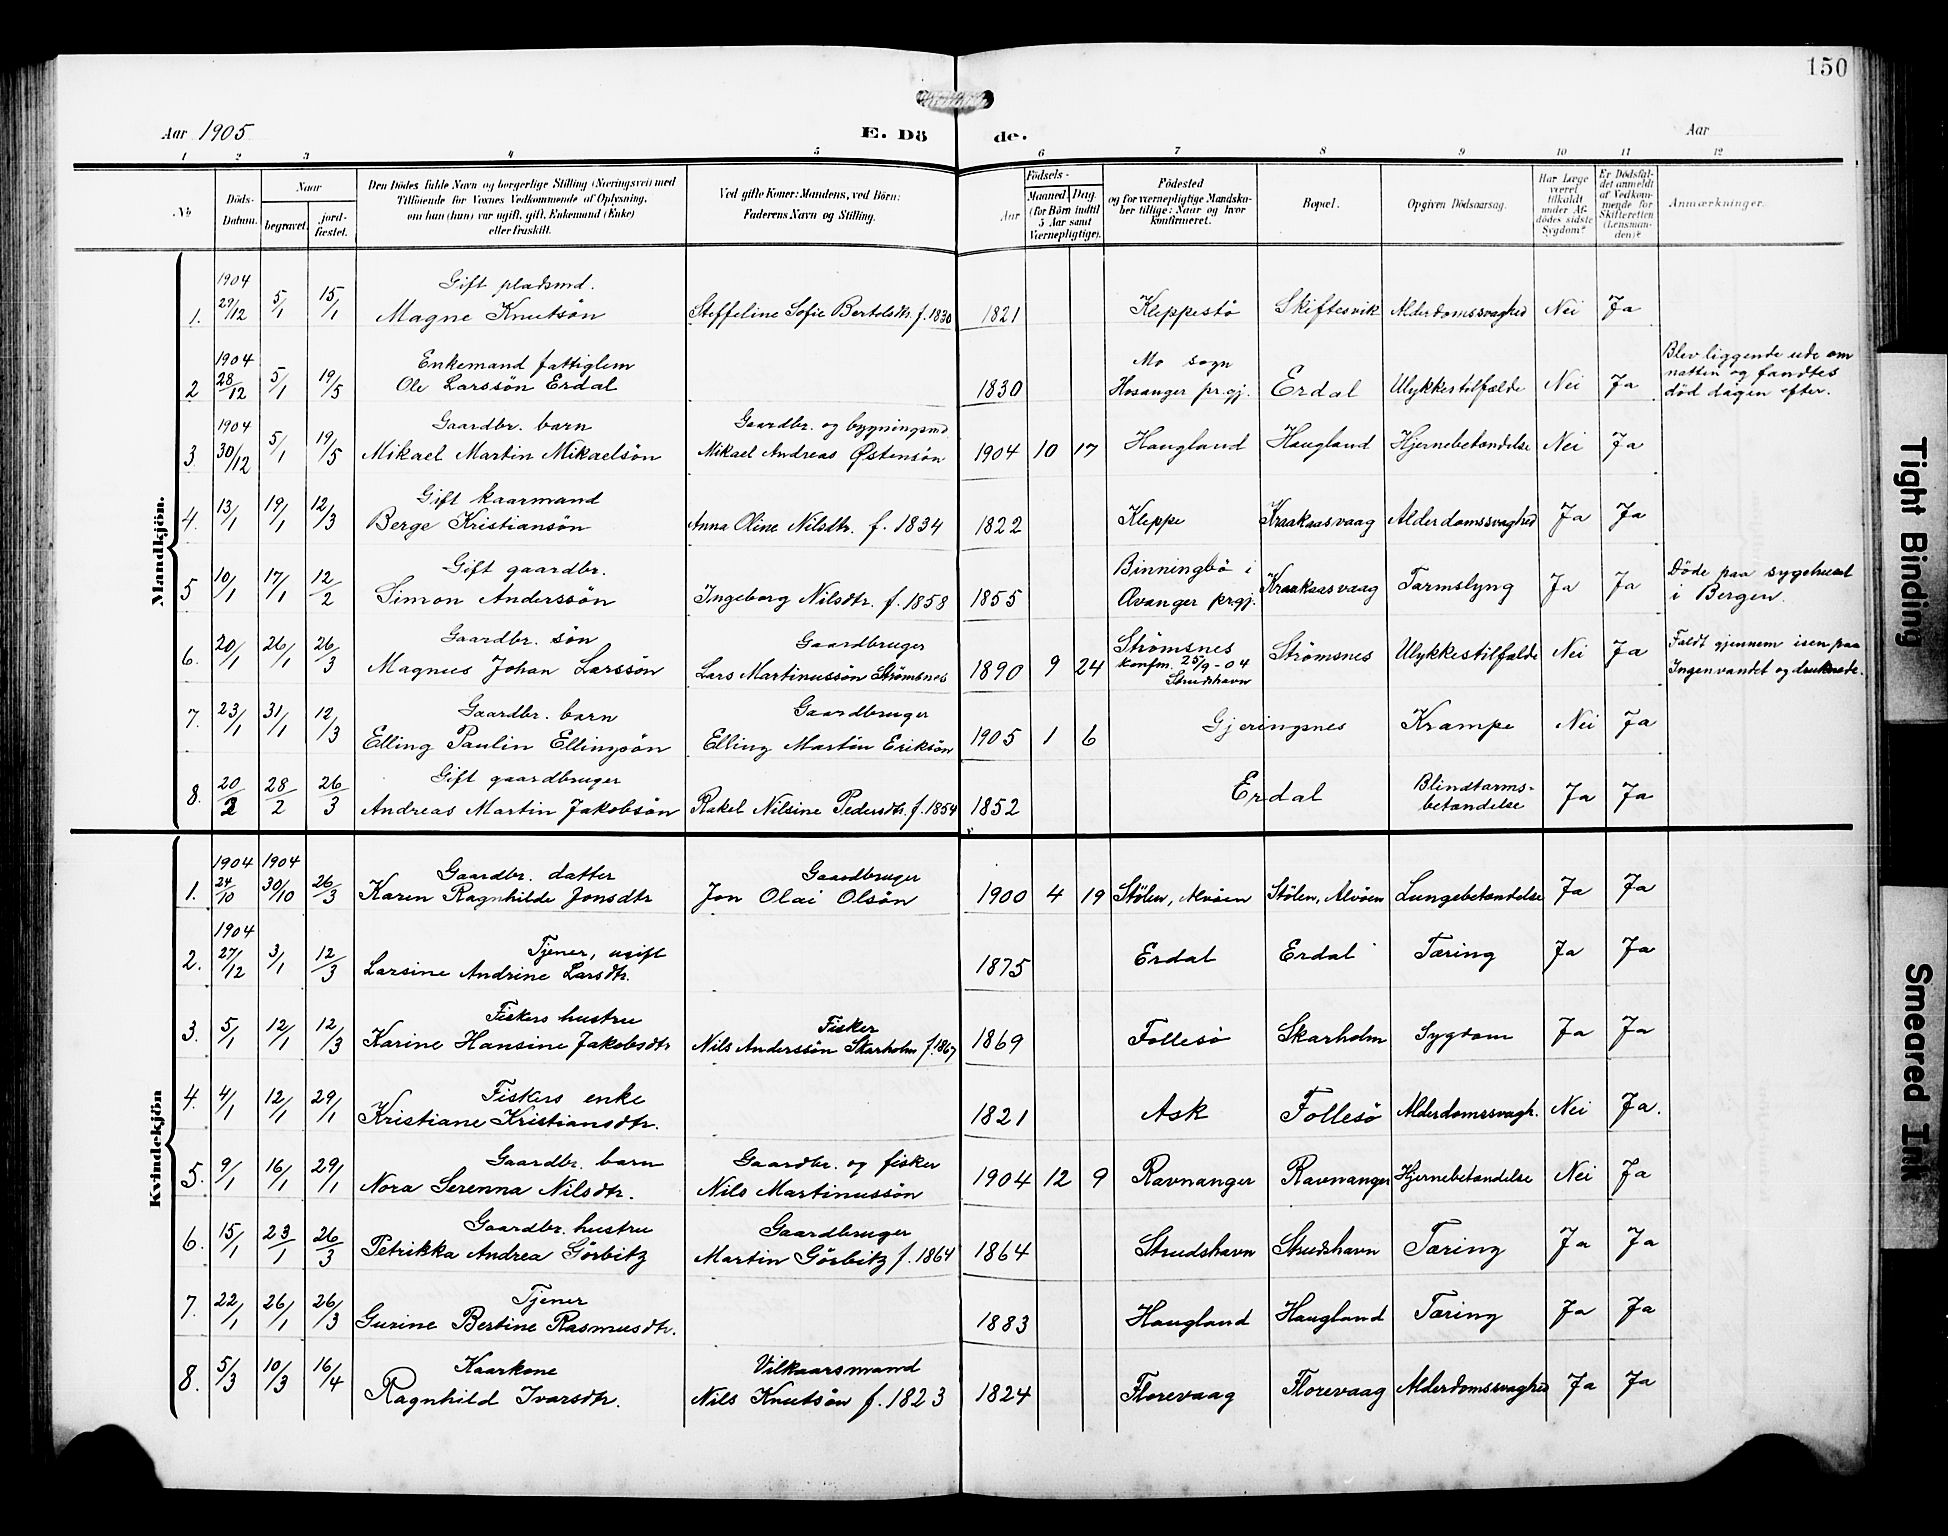 150
Aar 1905
E. Dö
de.
Aar
1 2 3 4 5 6 7 8 9 10 11 12
No
Döds-Datum.
Naar
begravet.
jord-fæstet.
Den Dödes fulde Navn og borgerlige Stilling (Næringsvei) med
Tilföiende for Voxnes Vedkommende af Oplysning,
om han (hun) var ugift, gift, Enkemand (Enke)
eller fraskilt.
Ved gifte Koner: Mandens, ved Börn:
Faderens Navn og Stilling.
Födsels-
Aar
Maaned. Dag.
(for Börn indtil
5 Aar samt
Værnepligtige).
Födested
og for værnepligtige Mandska-
ber tillige: Naar og hvor
konfirmeret.
Bopæl.
Opgiven Dödsaarsag.
Har Læge
været
tilkaldt
under Af-
dödes sidste
Sygdom?
Er Dödsfal-
det anmeldt
af Vedkom-
mende for
Skifteretten
(Lensman-
den)?
Anmærkninger.
Mandkjön.
1904 Gift pladsmd.
1. 29/12 5/1 15/1 Magne Knutsön Steffeline Sofie Bertelsdtr. f. 1830 1821 Kleppestö Skiftesvik Alderdomssvaghed Nei Ja
1904 Enkemand fattiglem Mo sogn Blev liggende ude om
2 28/12 5/1 19/5 Ole Larssön Erdal 1830 Hosanger pr.gj. Erdal Ulykkestilfælde Nei Ja natten og fandtes
død dagen efter.
1904 Gaardbr. barn Gaardbr. og bygningsmd.
3 30/12 5/1 19/5 Mikael Martin Mikaelsön Mikael Andreas Østensön 1904 10 17 Haugland Haugland Hjernebetændelse Nei Ja
Gift kaarmand
4. 13/1 19/1 12/3 Berge Kristiansön Anna Oline Nilsdtr. f. 1834 1822 Kleppe Kraakaasvaag Alderdomssvaghed Ja Ja
Gift gaardbr. Binningbö i Døde paa sygehuset
5 10/1 17/1 12/2 Simon Anderssön Ingeborg Nilsdtr. f. 1858 1855 Avanger prgj. Kraakaasvaag Tarmslyng Ja Ja i Bergen.
Gaardbr. sön Gaardbruger Strömsnes Faldt gjennem isen paa
6. 20/1 26/1 26/3 Magnus Johan Larssön Lars Martinussön Strömsnes 1890 9 24 konfm. 25/9-04 Strudshavn Strömsnes Ulykkestilfælde Nei Ja Ingenvandet og druknede.
Gaardbr. barn Gaardbruger
7. 23/1 31/1 12/3 Elling Paulin Ellingsön Elling Martin Eriksön 1905 1 6 Gjeringsnes Krampe Nei Ja
Gift gaardbruger Blindtarms-
8. 20/2 28/2 26/3 Andreas Martin Jakobsön Rakel Nilsine Pedersdtr. f. 1854 1852 Erdal betændelse Ja Ja
Kvindekjön
1904 1904 Gaardbr. datter Gaardbruger
1. 24/10 30/10 26/3 Karen Ragnhilde Jonsdtr Jon Olai Olsön 1900 4 19 Stölen, Alvöen Stölen, Alvöen Lungebetændelse Ja Ja
1904 Tjener, ugift
2. 27/12 3/1 12/3 Larsine Andrine Larsdtr. 1875 Erdal Erdal Tæring Ja Ja
Fiskers hustru Fisker
3. 5/1 12/1 12/3 Karine Hansine Jakobsdtr Nils Anderssön Skarholm f. 1867 1869 Follesö Skarholm Sygdom Ja Ja
Fiskers enke
4. 4/1 12/1 29/1 Kristiane Kristiansdtr. 1821 Ask Follesö Alderdomssvagh. Nei Ja.
Gaardbr. barn Gaardbr. og fisker
5. 9/1 16/1 29/1 Nora Serenna Nilsdtr. Nils Martinussön 1904 12 9 Ravnanger Ravnanger Hjernebetændelse Nei Ja
Gaardbr. hustru Gaardbruger
6. 15/1 23/1 26/3 Petrikka Andrea Görbitz Martin Görbitz f. 1864 1864 Strudshavn Strudshavn Tæring Ja Ja
Tjener
7. 22/1 26/1 26/3 Gurine Bertine Rasmusdtr. 1883 Haugland Haugland Tæring Ja Ja
Kaarkone Vilkaarsmand
8. 5/3 10/3 16/4 Ragnhild Ivarsdtr. Nils Knutsön f. 1823 1824 Florevaag Florevaag Alderdomssvaghed Ja Ja
Tight Binding
Smeared Ink